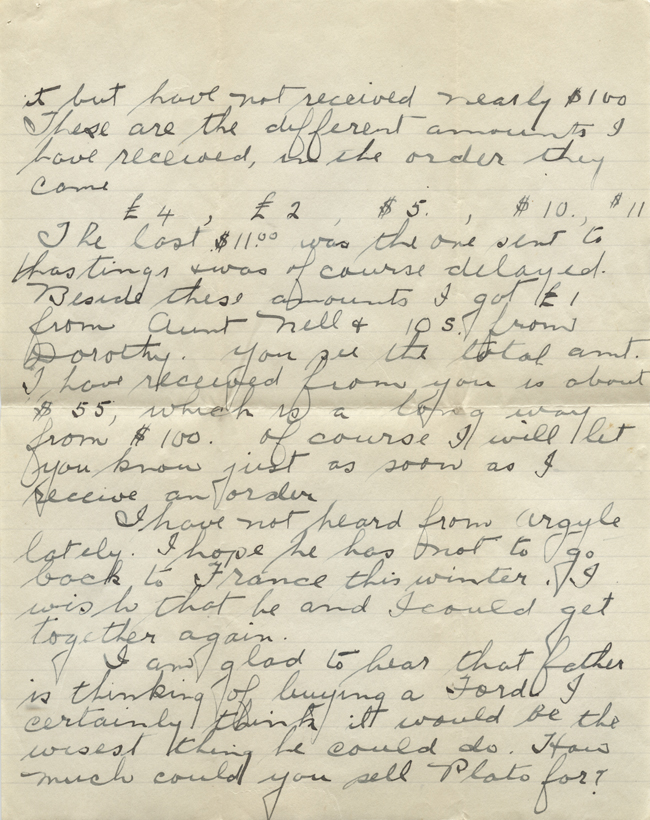 it but have not received nearly $100
These are the different amounts I
have received, in the order they
came
£4, £2, $5., $10., $11
The last $11.00 was the one sent to
Hastings & was of course delayed.
Beside these amounts I got £1
from Aunt Nell & 10 s. from
Dorothy. You see the total amt.
I have received from you is about
$55, which is a long way
from $100. Of course I will let
you know just as soon as I
receive an order
I have not heard from Argyle
lately. I hope he has not to go
back to France this winter. I
wish that he and I could get
together again.
I am glad to hear that father
is thinking of buying a Ford. I
certainly think it would be the
wisest thing he could do. How
much could you sell Plato for?